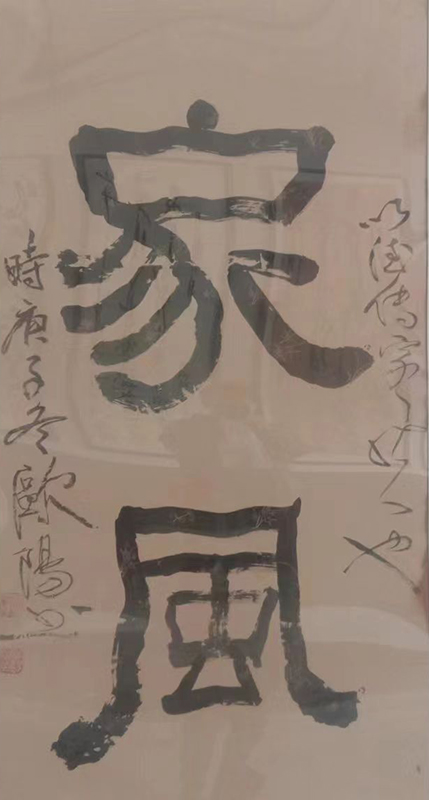 以德傳家也
家風
時庚子冬歐陽